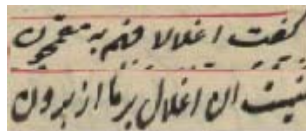 گفت اغلالا فهم به مقمحون
نیست ان اغلال بر ما از برون